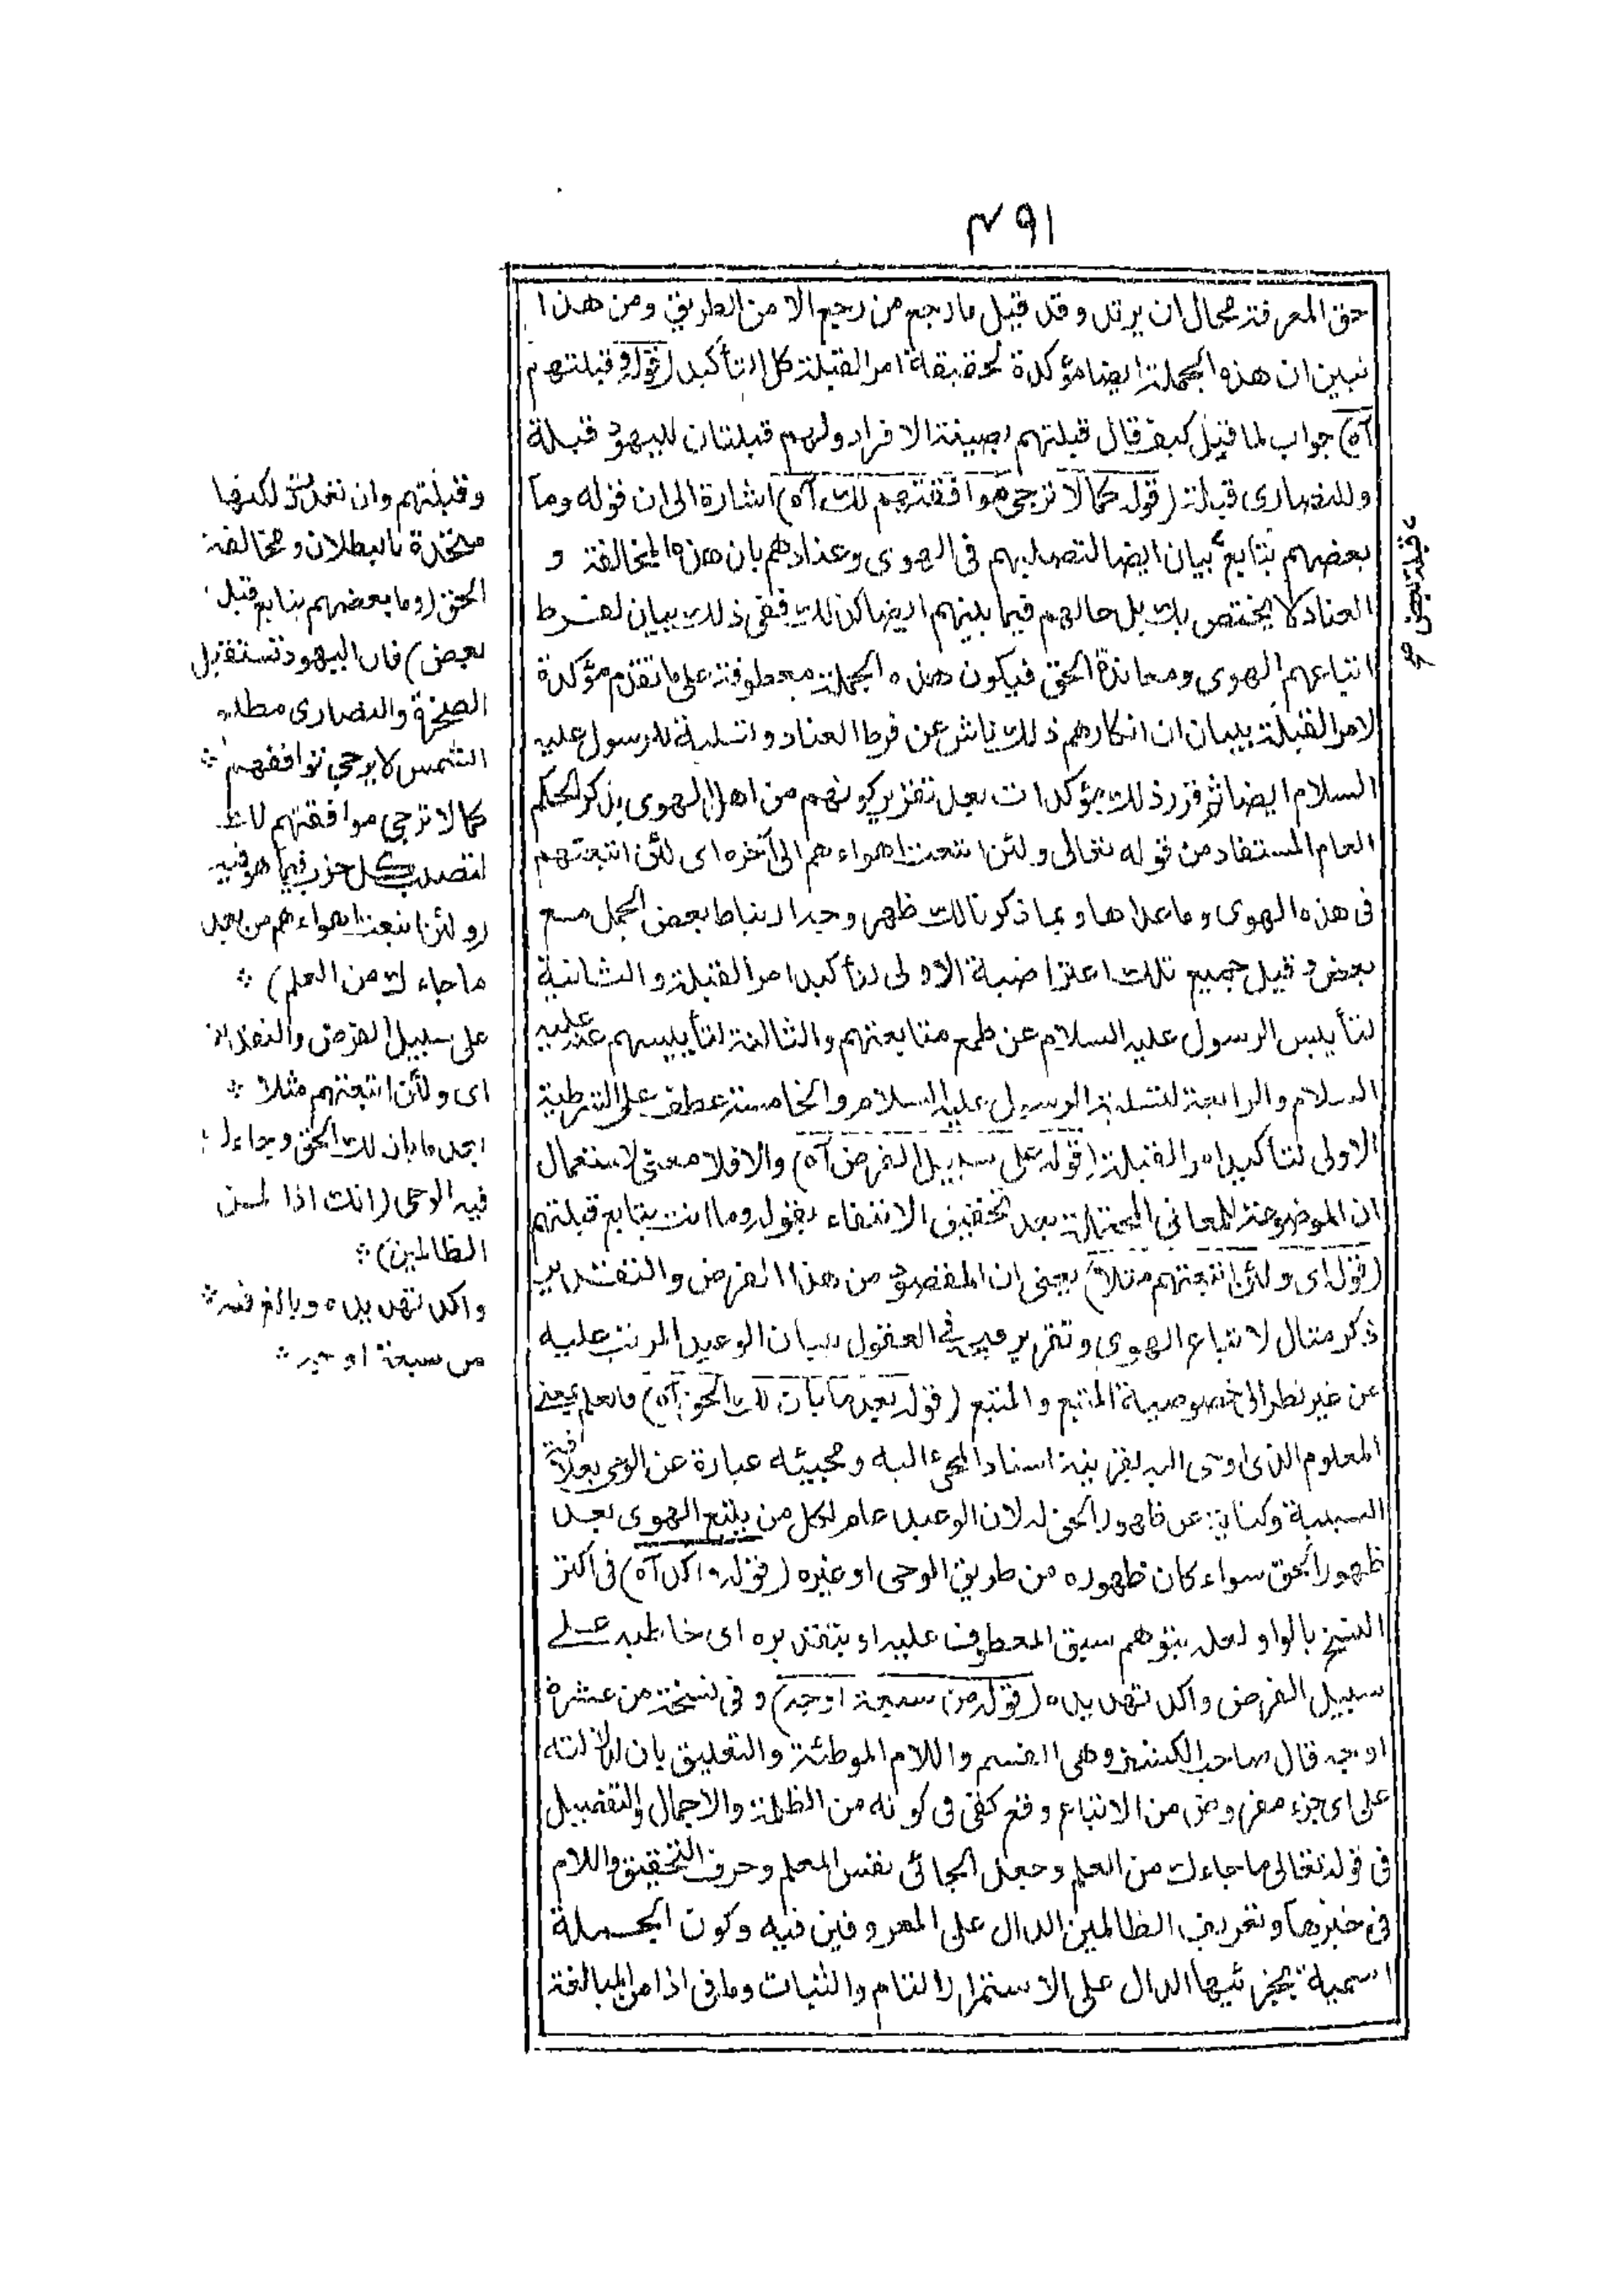 ٤٩١
حق المعرفة محال ان يرتد وقد قيل ما رجع من رجع الا من الطريق ومن هذا
تبين ان هذه الجملة ايضا مؤكدة لحقيقة امر القبلة كل التأكيد (قوله وقبلتهم
آه) جواب لما قيل كيف قال قبلتهم بصيغة الافراد ولهم قبلتان لليهود قبلة
وللنصارى قبلة (قوله كما لا ترجى موافقتهم لك آه) اشارة الى ان قوله وما
بعضهم بتابع بيان ايضا لتصلبهم فى الهوى وعنادهم بان هذه المخالفة و
العناد لا يختص بك بل حالهم فيما بينهم ايضا كذلك ففى ذلك بيان لفرط
اتباعهم الهوى ومعاندة الحق فيكون هذه الجملة معطوفة على ما تقدم مؤكدة
لامر القبلة ببيان ان انكارهم ذلك ناش عن فرط العناد وتسلية للرسول عليه
السلام ايضا ثم قرر ذلك بمؤكدات بعد تقرير كونهم من اهل الهوى بذكر الحكم
العام المستفاد من قوله تعالى ولئن اتبعت اهواءهم الى آخره اى لئن اتبعتهم
فى هذه الهوى وما عداها وبما ذكرنا لك ظهر وجه ارتباط بعض الجمل مع
بعض وقيل جميع تلك اعتراضية الاولى لتأكيد امر القبلة والثانية
لتأييس الرسول عليه السلام عن طمع متابعتهم والثالثة لتأييسهم عنه عليه
السلام والرابعة لتسلية الرسول عليه السلام والخامسة عطف على الشرطية
الاولى لتأكيد امر القبلة (قوله على سبيل الفرض آه) والا فلا معنى لاستعمال
ان الموضوعة للمعانى المحتملة بعد تحقيق الانتفاء بقوله وما انت بتابع قبلتهم
(قوله اى ولئن اتبعتهم مثلا) يعنى ان المقصود من هذا الفرض والتقدير
ذكر مثال لاتباع الهوى وتقرير قبحه فى العقول ببيان الوعيد المرتب عليه
عن غير نظر الى خصوصية المتبع والمتبع (قوله بعد ما بان لك الحق آه) فالعلم بمعنى
المعلوم الذى اوحى اليه بقرينة اسناد المجئ اليه ومجيئه عبارة عن الوحى بعلاقة
السببية وكناية عن ظهور الحق له لان الوعيد عام لكل من يتبع الهوى بعد
ظهور الحق سواء كان ظهوره من طريق الوحى او غيره (قوله واكد آه) فى اكثر
النسخ بالواو لعله بتوهم سبق المعطوف عليه او بتقديره اى خاطبه على
سبيل الفرض واكد تهديده (قوله من سبعة اوجه) وفى نسخة من عشرة
اوجه قال صاحب الكشف وهى القسم واللام الموطئة والتعليق بان
على اى جزء مفروض من الاتباع وقع كفى فى كونه من الظلمة والاجمال والتفصيل
فى قوله تعالى ما جاءك من العلم وجعل الجائى نفس العلم وحرف التحقيق واللام
فى خبرها وتعريف الظالمين الدال على المعروفين فيه وكون الجملة
اسمية بجزئيها الدال على الاستمرار التام والثبات وما فى اذا من المبالغة
وقبلتهم وان تعددت لكنها
متحدة بالبطلان ومخالفة
الحق (وما بعضهم بتابع قبلة
بعض) فان اليهود تستقبل
الصخرة والنصارى مطلع
الشمس لا يرجى توافقهم
كما لا ترجى موافقتهم لك
لتصلب كل حزب فيما هو فيه
(ولئن اتبعت اهواءهم من بعد
ما جاءك من العلم)
على سبيل الفرض والتقدير
اى ولئن اتبعتهم مثلا
بعد ما بان لك الحق وجاءك
فيه الوحى (انك اذا لمن
الظالمين)
واكد تهديده وبالغ فيه
من سبعة اوجه